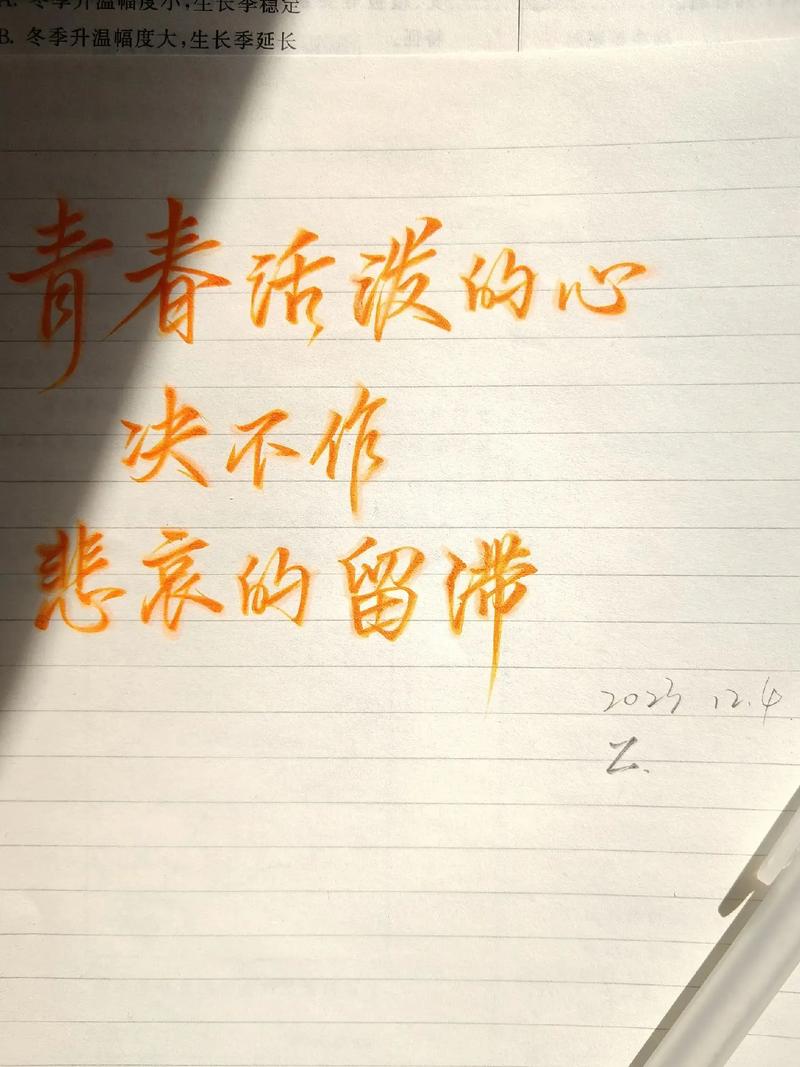 A. 冬季升温幅度小,生长季稳定
B. 冬季升温幅度大,生长季延长
青春活泼的心
决不作
悲哀的留滞
2023 12.4
Z.